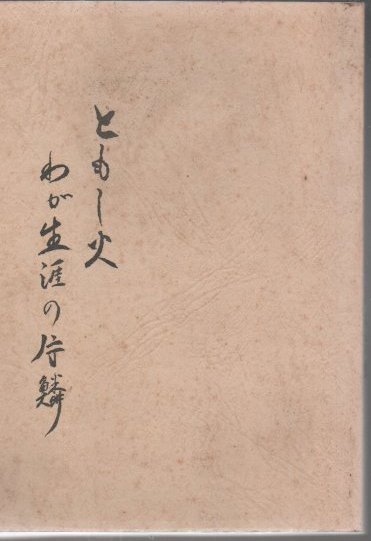 ともし火
わが生涯の片鱗